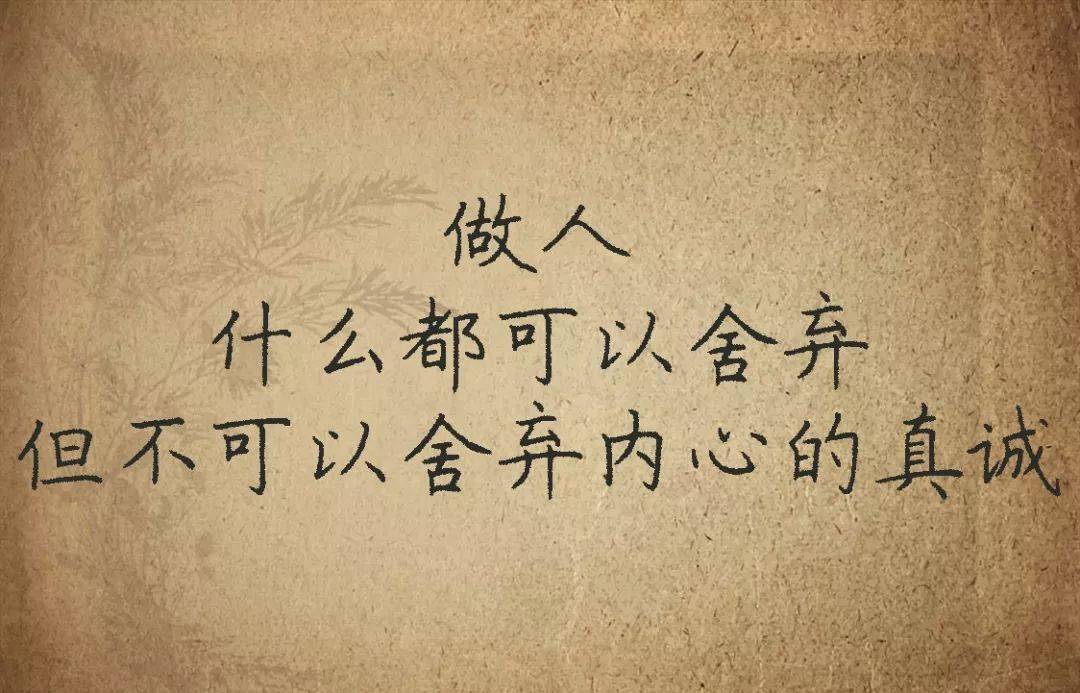 做人
什么都可以舍弃
但不可以舍弃内心的真诚